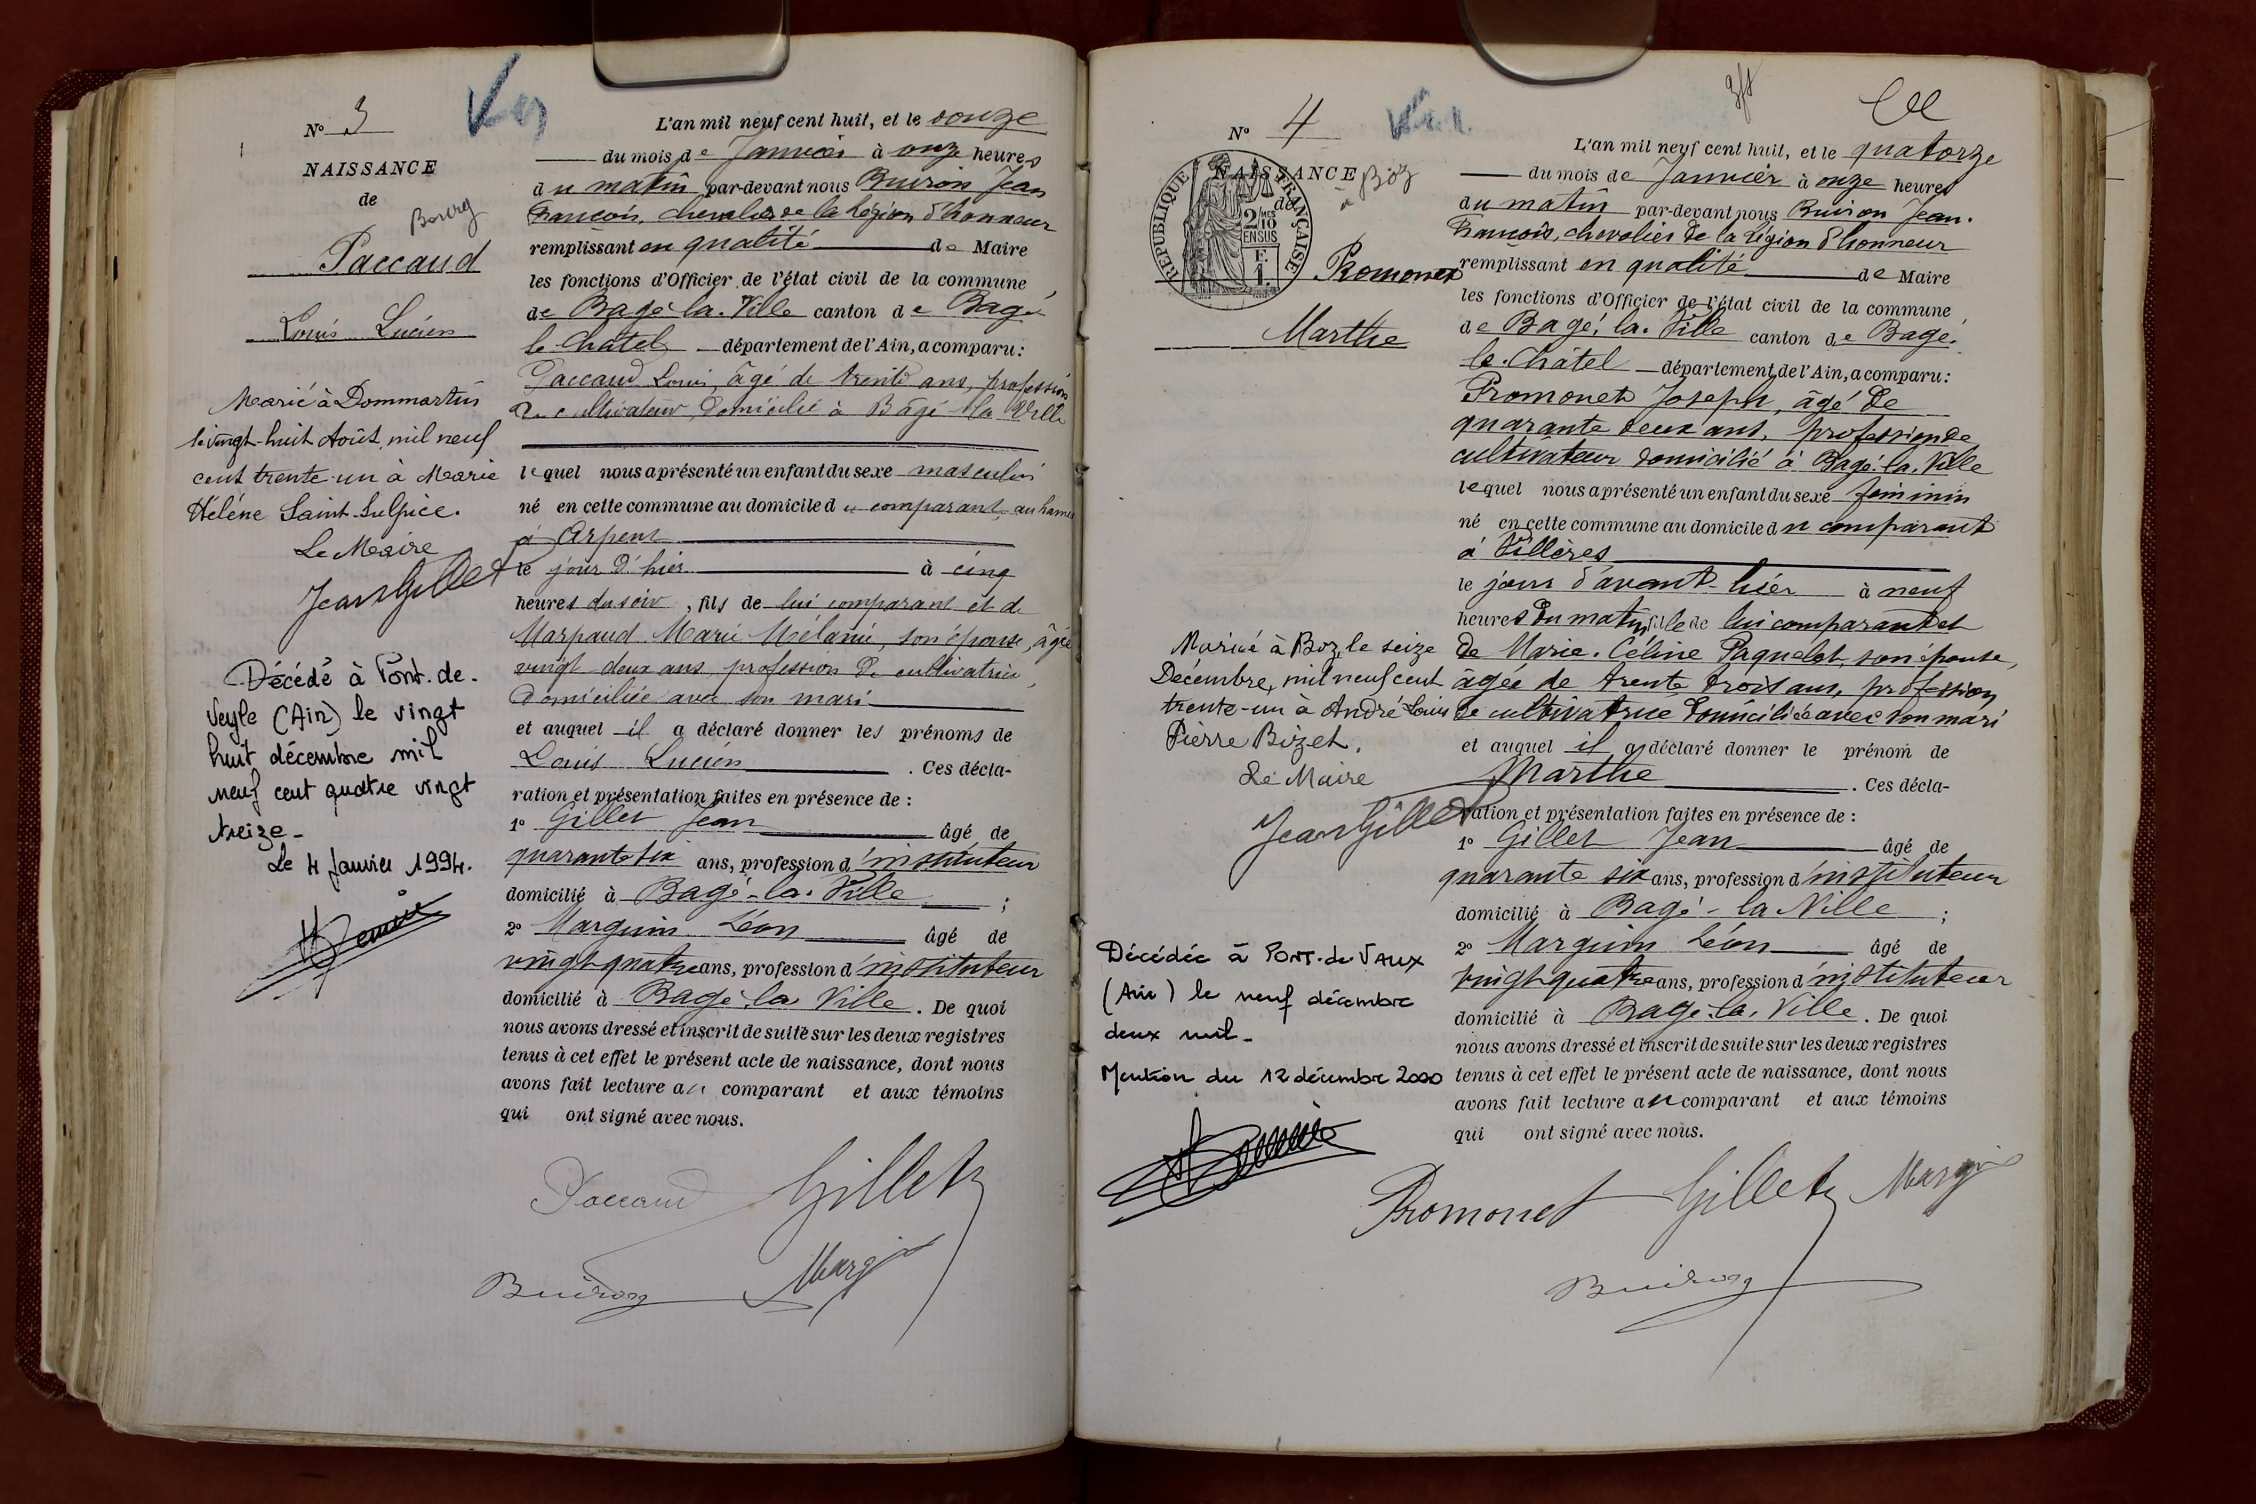 N° 3
NAISSANCE
de
Bourg
Paccaud
Louis Lucien
Marié à Dommartin
le vingt-huit Août mil neuf
cent trente-un à Marie
Hélène Saint-Sulpice.
Le Maire
Jean Gillet
Décédé à Pont-de-
Veyle (Ain) le vingt
huit décembre mil
neuf cent quatre vingt
treize-
Le 4 Janvier 1994.
L'an mil neuf cent huit, et le onze
du mois de Janvier à onze heures
du matin par-devant nous Buiron Jean
François, chevalier de la Légion d'honneur
remplissant en qualité de Maire
les fonctions d'Officier de l'état civil de la commune
de Bagé-la-Ville canton de Bagé
le-Châtel département de l'Ain, a comparu :
Paccaud Louis, âgé de trente ans, profession
de cultivateur, domicilié à Bâgé-la-Ville
lequel nous a présenté un enfant du sexe masculin
né en cette commune au domicile du comparant, au hameau
à Arpent
le jour d'hier à cinq
heures du soir, fils de lui comparant et de
Marpaud Marie Mélanie, son épouse, âgée
vingt deux ans, profession de cultivatrice,
domiciliée avec son mari
et auquel il a déclaré donner les prénoms de
Louis Lucien . Ces décla-
ration et présentation faites en présence de :
1° Gillet Jean âgé de
quarante six ans, profession d'instituteur
domicilié à Bagé-la-Ville ;
2° Marguin Léon âgé de
vingt-quatre ans, profession d'instituteur
domicilié à Bagé-la-Ville . De quoi
nous avons dressé et inscrit de suite sur les deux registres
tenus à cet effet le présent acte de naissance, dont nous
avons fait lecture au comparant et aux témoins
qui ont signé avec nous.
Paccaud Gillet
Buiron Marguin
N° 4
NAISSANCE
de
à Boz
REPUBLIQUE FRANÇAISE
2/10
EN SUS
F.
1.
Promonet
Marthe
Mariée à Boz, le seize
Décembre, mil neuf cent
trente-un à André Louis
Pierre Bizet.
Le Maire
Jean Gillet
Décédée à Pont-de-Vaux
(Ain) le neuf décembre
deux mil-
Mention du 12 décembre 2000
L'an mil neuf cent huit, et le quatorze
du mois de Janvier à onze heures
du matin par-devant nous Buiron Jean-
François, chevalier de la Légion d'honneur
remplissant en qualité de Maire
les fonctions d'Officier de l'état civil de la commune
de Bagé-la-Ville canton de Bagé-
le-Châtel département de l'Ain, a comparu :
Promonet Joseph, âgé de
quarante deux ans, profession de
cultivateur domicilié à Bagé-la-Ville
lequel nous a présenté un enfant du sexe féminin
né en cette commune au domicile du comparant
à Villères
le jour d'avant-hier à neuf
heures du matin, fille de lui comparant et
de Marie-Céline Paquelet, son épouse,
âgée de trente trois ans, profession
de cultivatrice domiciliée avec son mari
et auquel il a déclaré donner le prénom de
Marthe . Ces décla-
ration et présentation faites en présence de :
1° Gillet Jean âgé de
quarante six ans, profession d'instituteur
domicilié à Bagé-la Ville ;
2° Marguin Léon âgé de
vingt-quatre ans, profession d'instituteur
domicilié à Bagé-la-Ville . De quoi
nous avons dressé et inscrit de suite sur les deux registres
tenus à cet effet le présent acte de naissance, dont nous
avons fait lecture au comparant et aux témoins
qui ont signé avec nous.
Promonet Gillet Marguin
Buiron